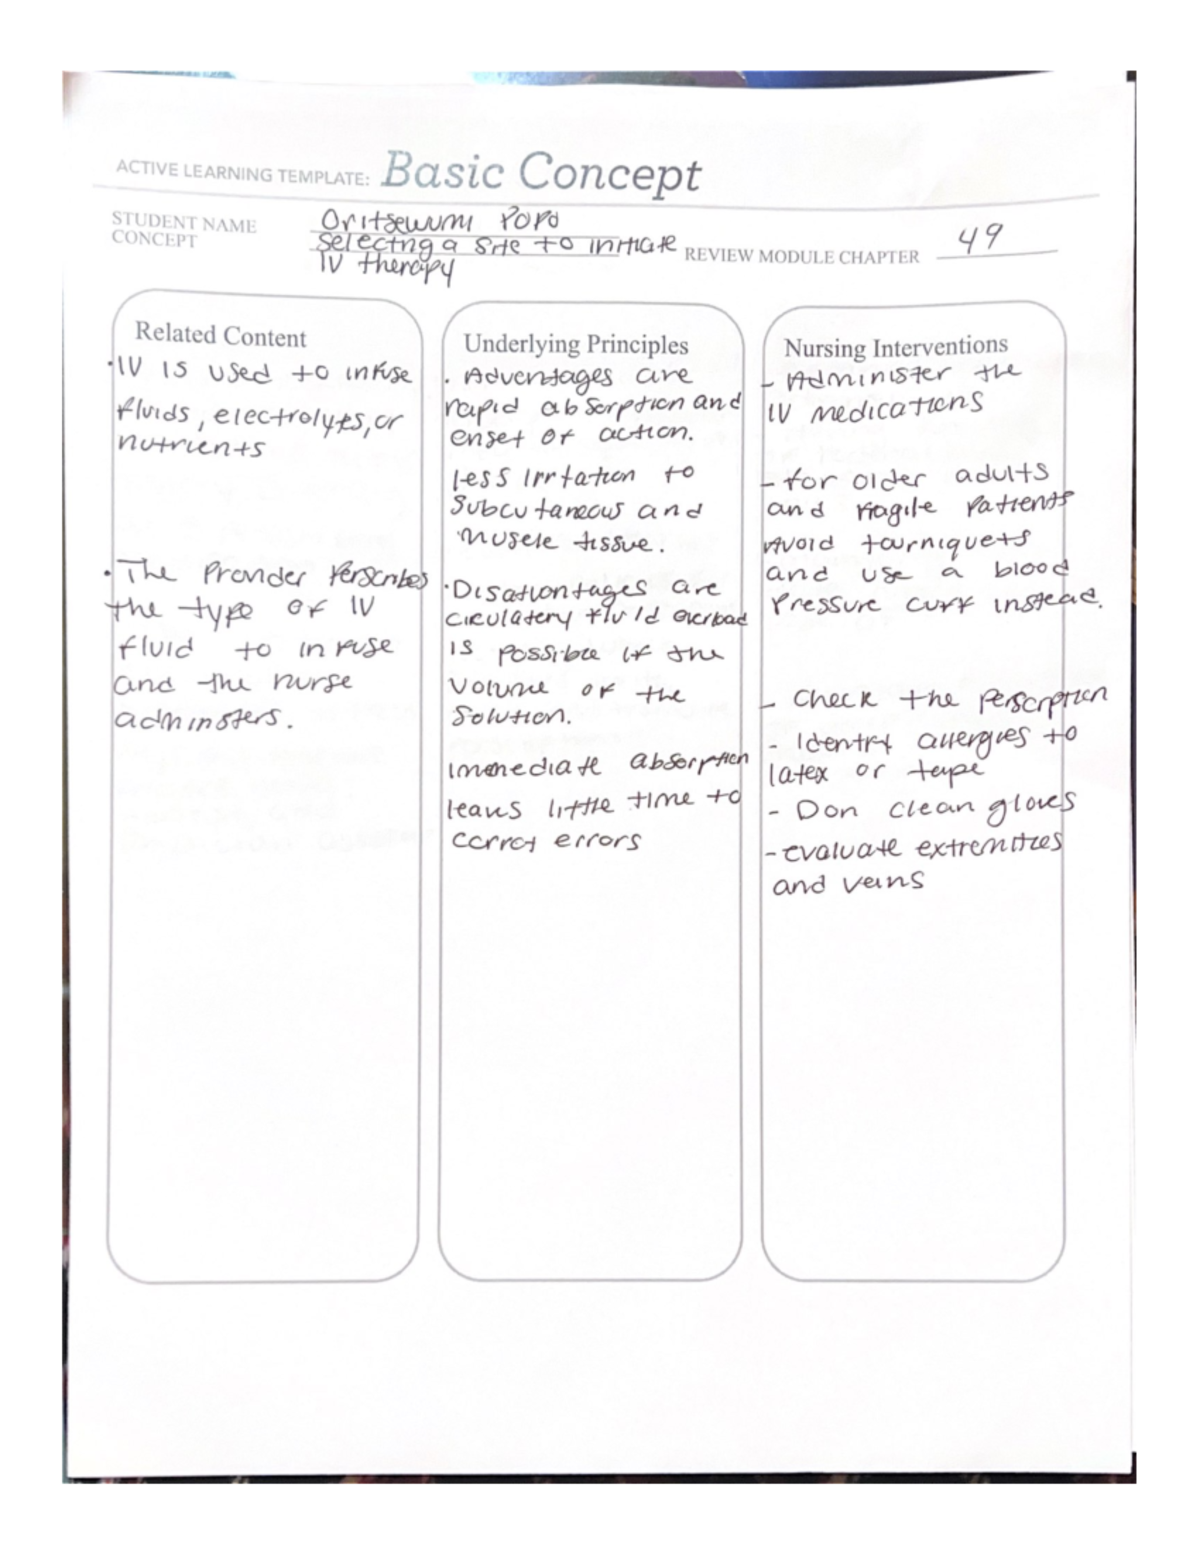 ACTIVE LEARNING TEMPLATE: Basic Concept
STUDENT NAME
Oritsewumi Popo
CONCEPT
selecting a site to initiate
IV therapy
REVIEW MODULE CHAPTER 49
Related Content
·IV is used to infuse
fluids, electrolytes, or
nutrients
·The Provider Perscribes
the type of IV
fluid to infuse
and the nurse
adminsters.
Underlying Principles
· Adventages are
rapid absorption and
onset of action.
less irritation to
Subcutaneous and
muscle tissue.
·Disadvantages are
circulatory fluid overload
is possible if the
volume of the
Solution.
immediate absorption
leaves little time to
correct errors
Nursing Interventions
- Administer the
IV medications
- for older adults
and fragile Patients
Avoid tourniquets
and use a blood
Pressure cuff instead.
- Check the Perscription
- Identify allergies to
latex or tape
- Don clean gloves
- evaluate extremities
and veins